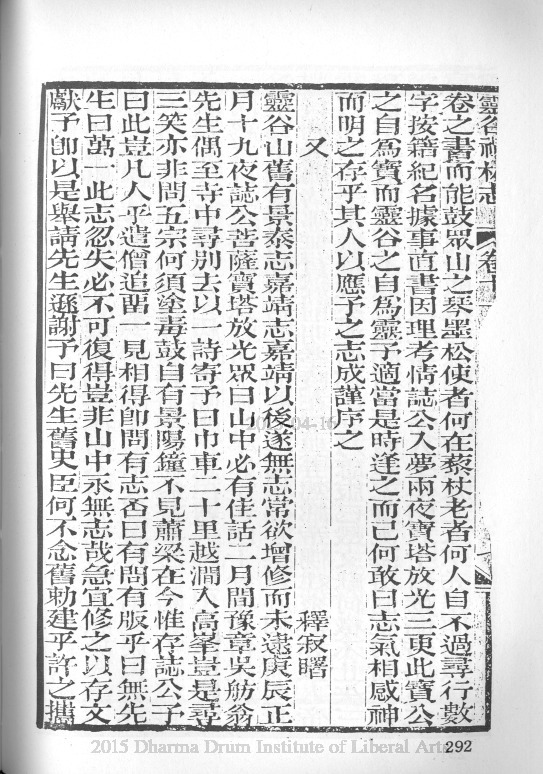 靈谷禪林志 卷十
卷之書而能鼓眾山之琴墨松使者何在藜杖老者何人自不過尋行數
字按籍紀名據事直書因理考情誌公入夢兩夜寶塔放光三更此寶公
之自為寶而靈谷之自為靈予適當是時逢之而已何敢曰志氣相感神
而明之存乎其人以應予之志成謹序之
又 釋寂曙
靈谷山舊有景泰志嘉靖志嘉靖以後遂無志常欲增修而未逮庚辰正
月十九夜誌公菩薩寶塔放光眾曰山中必有佳話二月間豫章吳舫翁
先生偶至寺中尋別去以一詩寄予曰巾車二十里越澗入高峯豈是尋
三笑亦非問五宗何須塗毒鼓自有景陽鐘不見蕭梁在今惟存誌公予
曰此豈凡人乎遣僧追畱一見相得即問有志否曰有問有版乎曰無先
生曰萬一此志忽失必不可復得豈非山中永無志哉急宜修之以存文
獻予即以是舉請先生遜謝予曰先生舊史臣何不念舊勅建乎許之攜
2015 Dharma Drum Institute of Liberal Arts
292